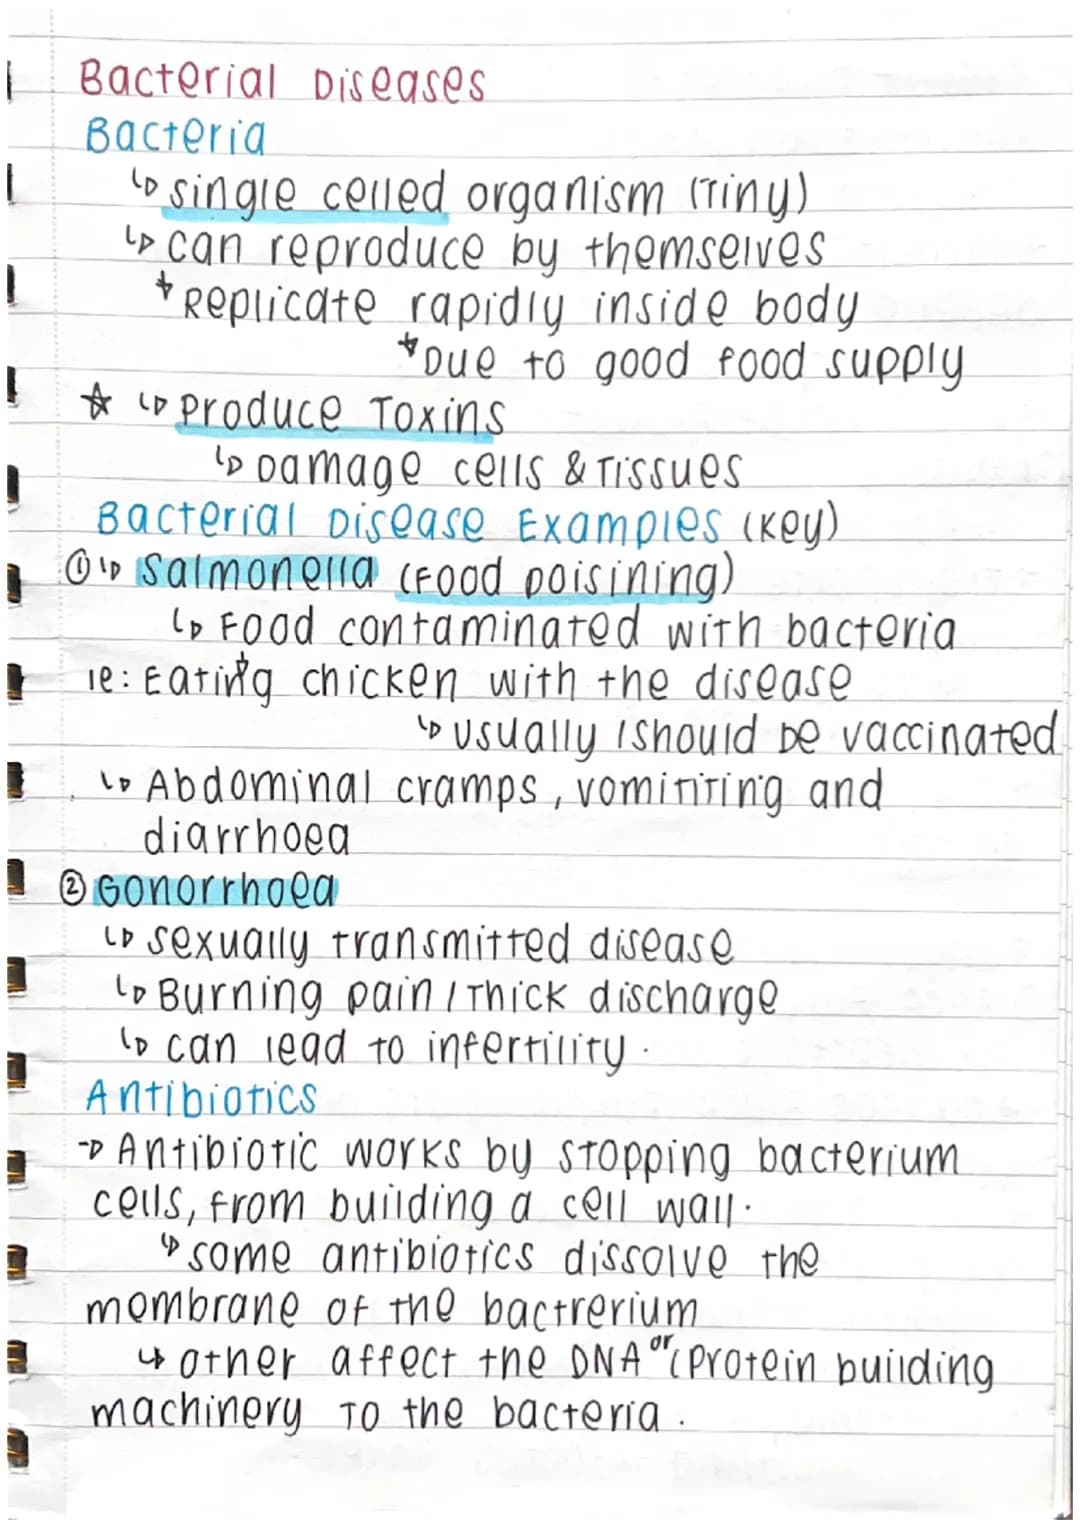 Bacterial Diseases
Bacteria
↳ single celled organism (Tiny)
↳ can reproduce by themselves
* Replicate rapidly inside body
* Due to good food supply
☆ ↳ Produce Toxins
↳ Damage cells & Tissues
Bacterial Disease Examples (Key)
① ↳ Salmonella (Food poisining)
↳ Food contaminated with bacteria
ie: Eating chicken with the disease
↳ usually / should be vaccinated
↳ Abdominal cramps, vomitting and
diarrhoea
② Gonorrhoea
↳ sexually transmitted disease
↳ Burning pain / Thick discharge
↳ can lead to infertility.
Antibiotics
→ Antibiotic works by stopping bacterium
cells, from building a cell wall.
↳ some antibiotics dissolve the
membrane of the bactrerium
↳ other affect the DNA or (Protein building
machinery To the bacteria.